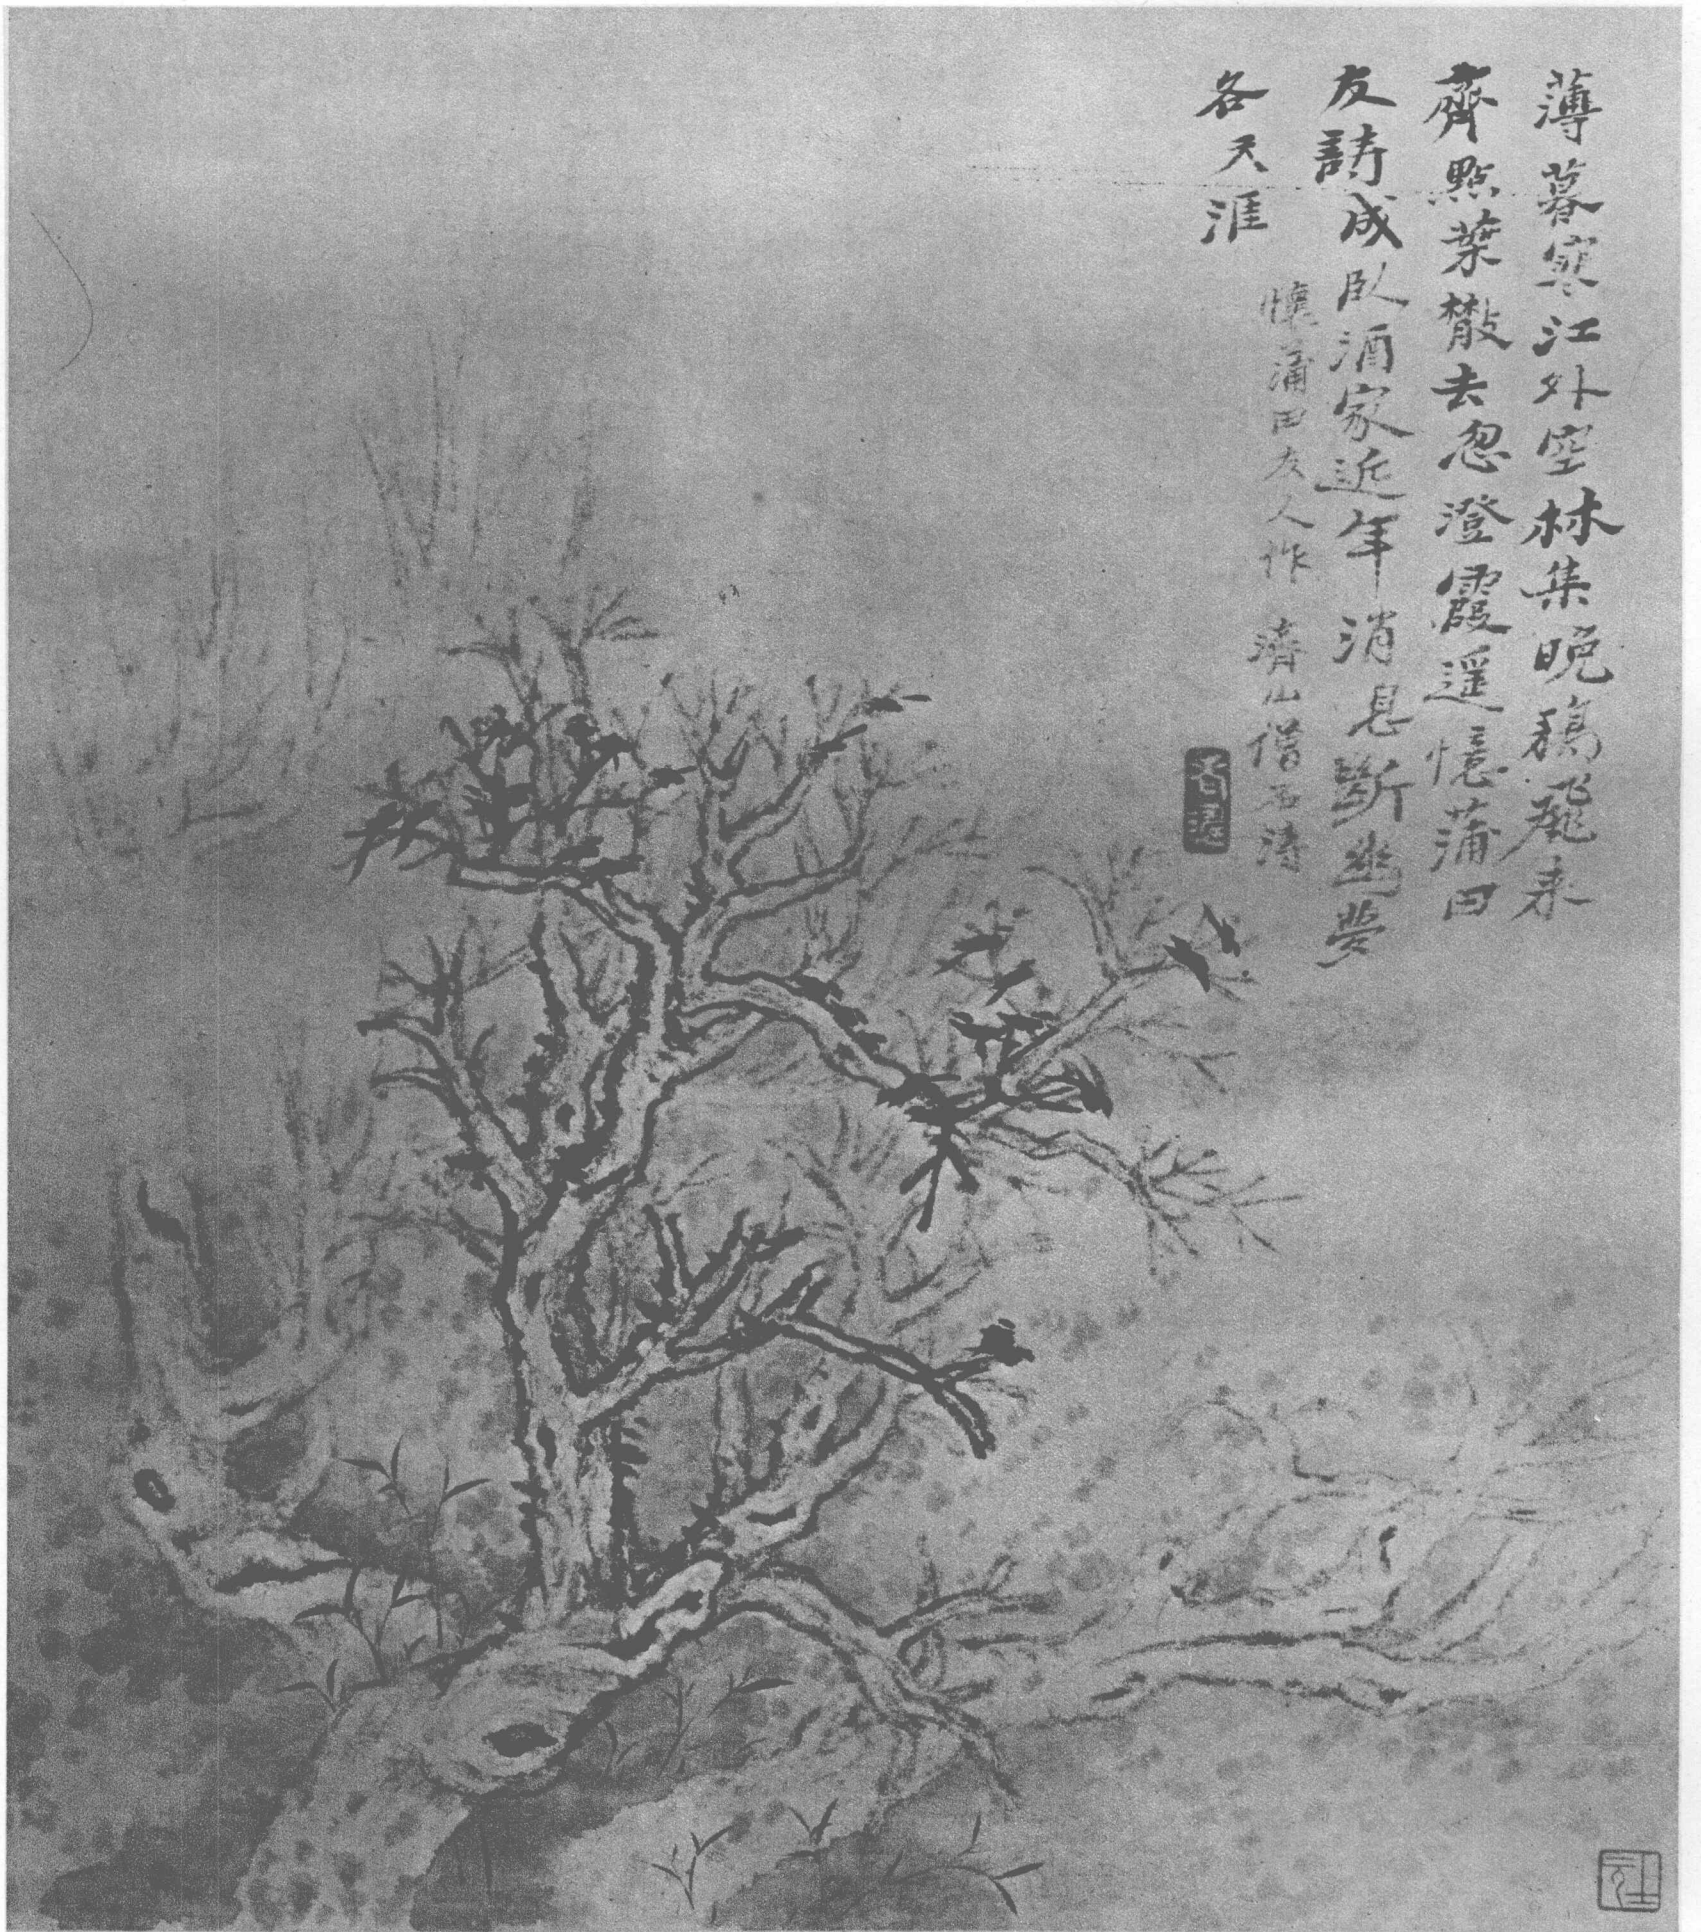 薄暮寒江外空林集晚鵶飛来
齊點葉散去忽澄霞遥憶蒲田
友詩成臥酒家近年消息斷幽夢
各天涯
懷蒲田友人作 濟山僧石濤